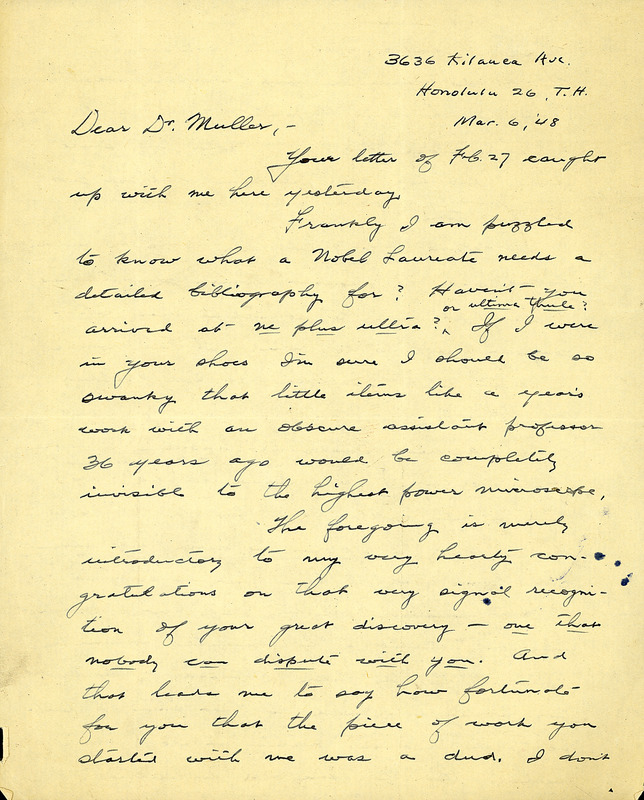 3636 Kilauea Ave.
Honolulu 26, T.H.
Mar. 6, '48
Dear Dr. Muller,-
Your letter of Feb. 27 caught
up with me here yesterday.
Frankly I am puzzled
to know what a Nobel Laureate needs a
detailed bibliography for? Haven't you
or ultima thule?
arrived at ne plus ultra? If I were
in your shoes I'm sure I should be so
swanky that little items like a year's
work with an obscure assistant professor
36 years ago would be completely
invisible to the highest power microscope.
The foregoing is merely
introductory to my very hearty con-
gratulations on that very signal recogni-
tion of your great discovery — one that
nobody can dispute with you. And
that leads me to say how fortunate
for you that the piece of work you
started with me was a dud. I don't